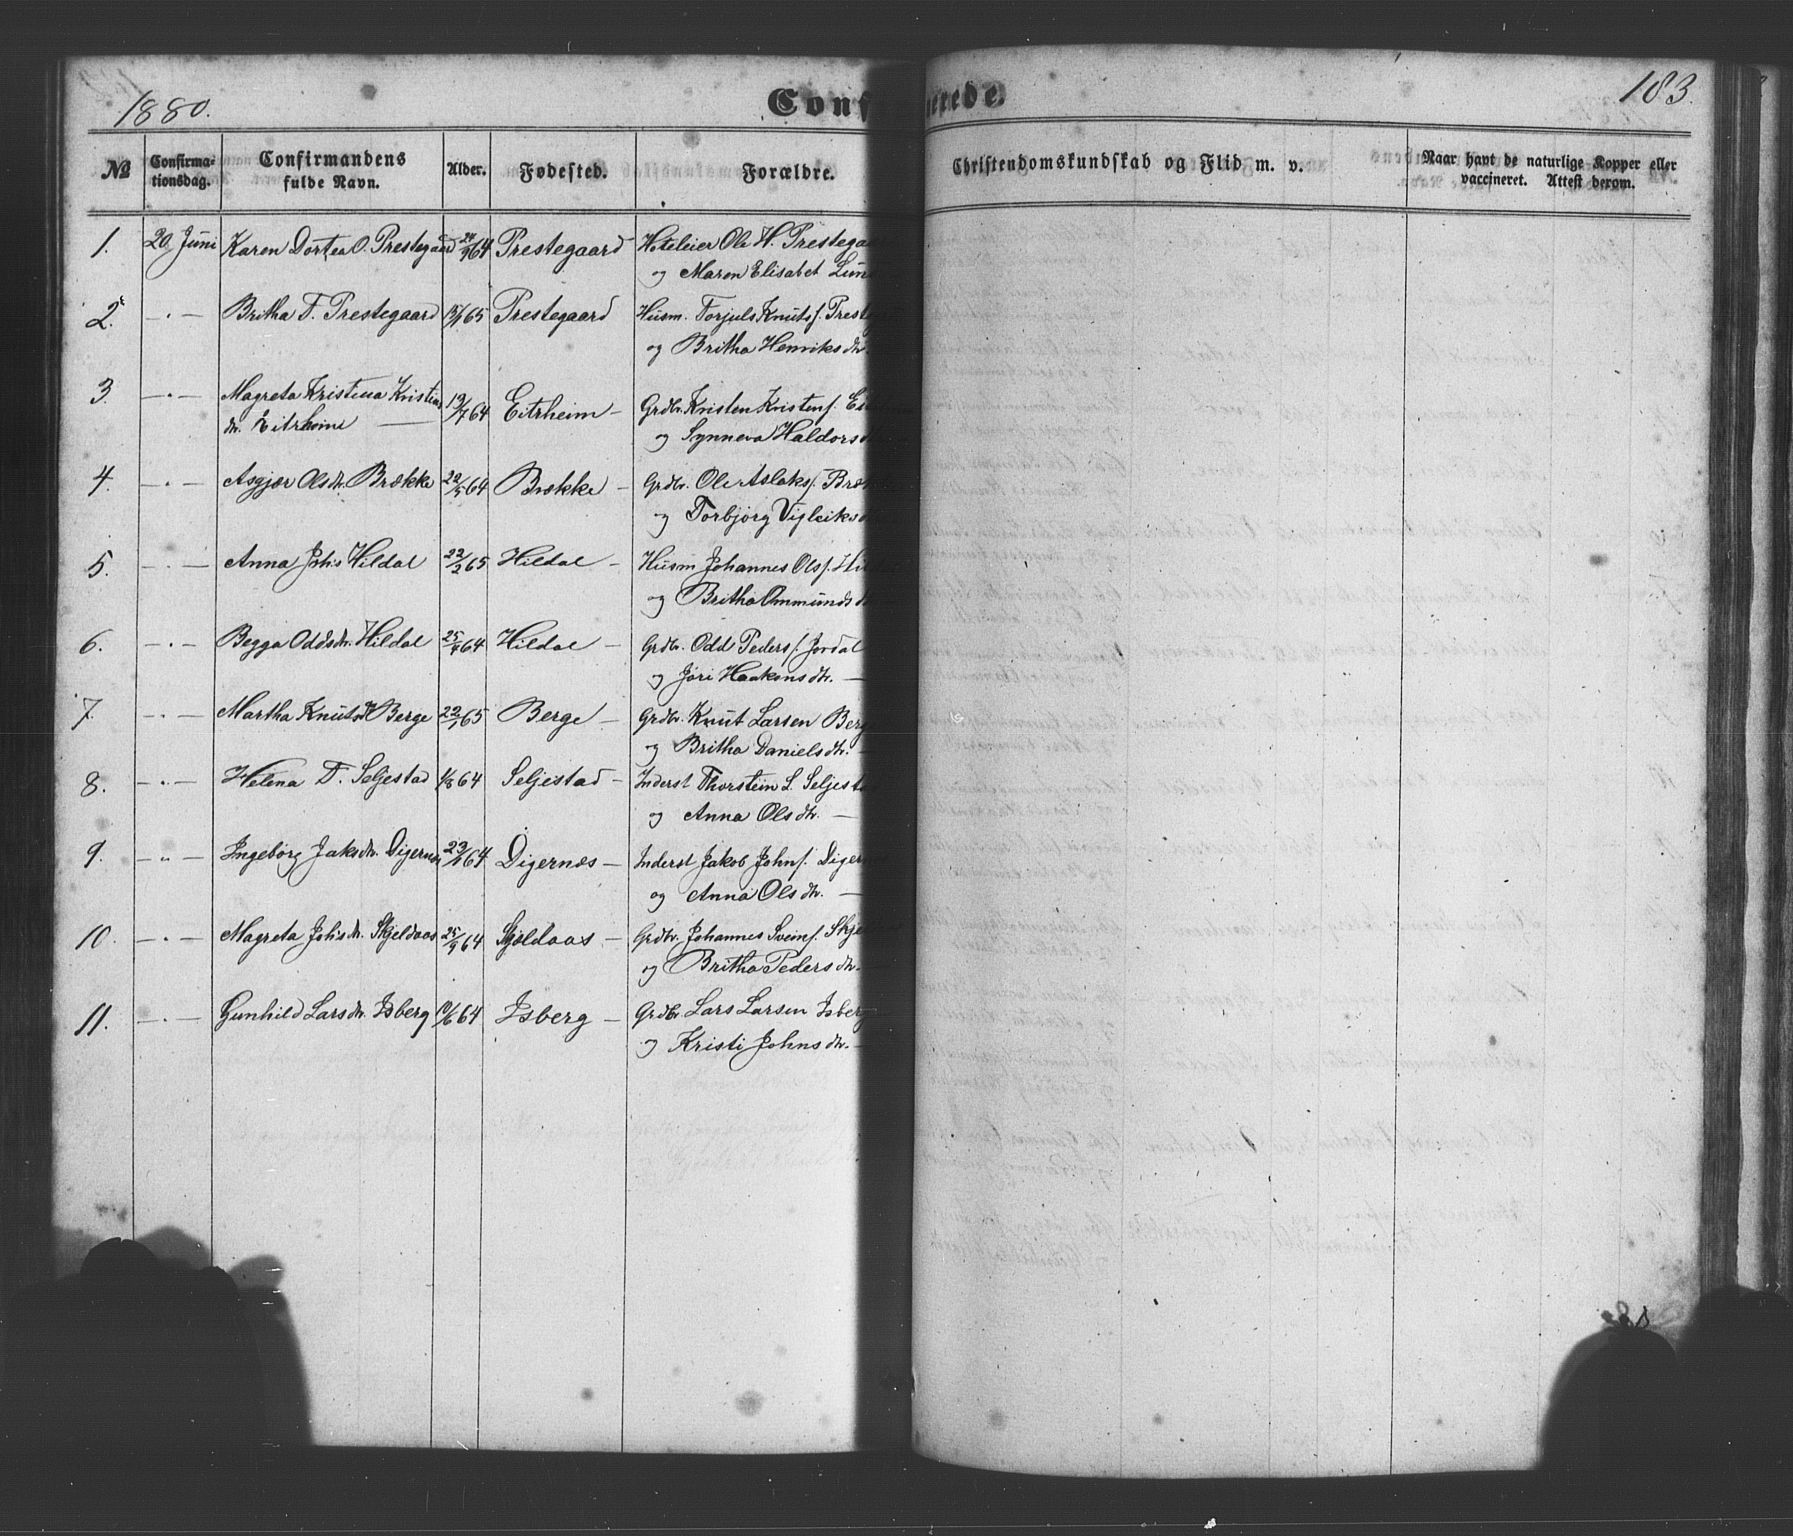 1880.
Conf
nerede.
183.
No
Confirma-
tionsdag.
Confirmandens
fulde Navn.
Alder.
Fødested.
Forældre.
Christendomskundskab og Flid m. v.
Naar havt de naturlige Kopper eller
vaccineret. Attest derom.
1. 20 Juni Karen Dortea O. Prestegaard 24/9 64 Prestegaard Hoteleier Ole H. Prestegaa
og Maren Elisabet Lun
2. - " - Britha T. Prestegaard 15/1 65 Prestegaard Husm. Torjuls Knutss. Preste
og Britha Henriksdtr.
3. - " - Magreta Kristina Kristens 19/7 64 Eitrheim - Grdbr. Kristen Kristens. Ei
dtr. Eitrheim — og Synneva Haldorsd
4. - " - Asgjær Olsdtr. Brække 22/5 64 Brække - Grdbr. Ole Aslaks. Bræ
og Torbjørg Vigleiksd
5. - " - Anna Johs Hildal 22/2 65 Hildal - Husm Johannes Ols. Hi
og Britha Ommundsd
6. - " - Begga Oddsdtr. Hildal 25/4 64 Hildal - Grdbr. Odd Peders. Jordal
og Jori Haakonsdtr. —
7. - " - Martha Knutsdtr Berge 22/1 65 Berge - Grdbr. Knut Larsen Berg
og Britha Danielsdtr. —
8. - " - Helena T. Seljestad 1/8 64 Seljestad - Inderst Thorstein L. Seljesta
og Anna Olsdtr. —
9. - " - Ingeborg Jaksdtr. Digernes 64 Digernæs - Inderst Jakob Johns. Diger
og Anna Olsdtr. —
10. - " - Magreta Johsdtr. Skjeldaas 25/9 64 Skjældaas - Grdbr. Johannes Sveins. Skje
og Britha Pedersdtr. —
11. - " - Gunhild Larsdtr. Isberg 64 Isberg - Grdbr Lars Larsen Isberg
og Kristi Johnsdtr. —